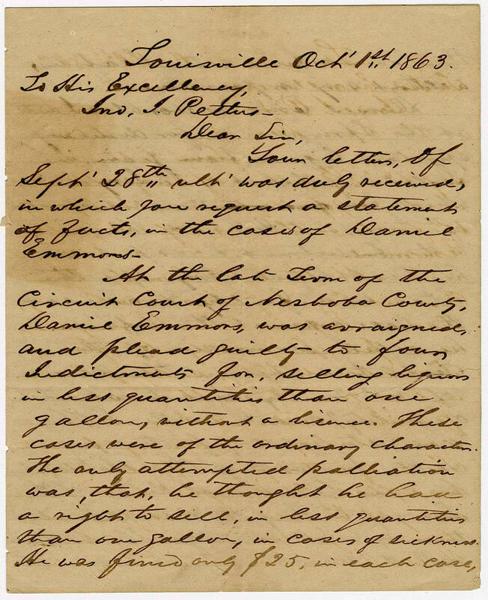 Louisville Oct' 1st, 1863.
To His Excellency,
Jno. J. Pettus-
Dear Sir,
Your letter, of
Sept' 28th " ult' was duly received,
in which you request a statement
of facts, in the cases of Daniel
Emmons-
At the late Term of the
Circuit Court of Neshoba County,
Daniel Emmons, was arraigned,
and plead guilty to four
Indictments for, selling liquors
in less quantities than one
gallon, without a lisence. These
cases were of the ordinary character.
The only attempted palliation
was, that, he thought he had
a right to sell, in less quantities
than one gallon, in cases of sickness.
He was fined only $25. in each case,